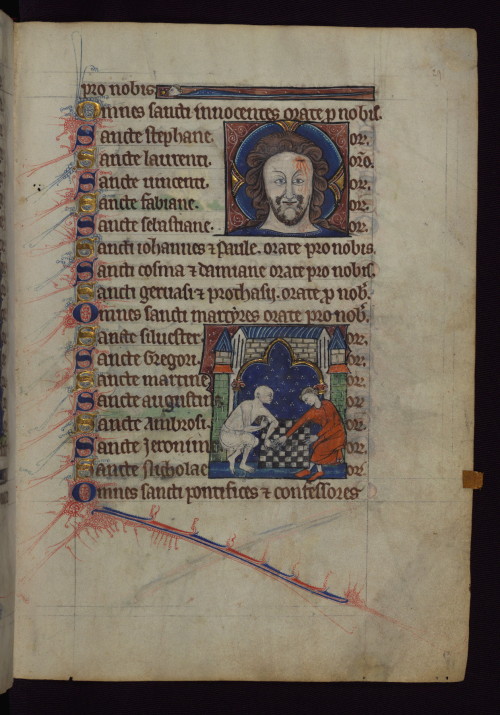 pro nobis
Omnes sancti innocentes orate p nobis.
Sancte stephane. or.
Sancte laurenti. oro.
Sancte vincenti. or.
Sancte fabiane. or.
Sancte sebastiane. or.
Sancti iohannes ⁊ paule. orate pro nobis.
Sancti cosma ⁊ damiane orate pro nobis.
Sancti geruasi ⁊ prothasij. orate p nob.
Omnes sancti martyres orate pro nob.
Sancte siluester or.
Sancte Gregori. or.
Sancte martine or.
Sancte augustine or.
Sancte Ambrosi. or.
Sancte Jeronime or.
Sancte Nicholae or
Omnes sancti pontifices ⁊ confessores